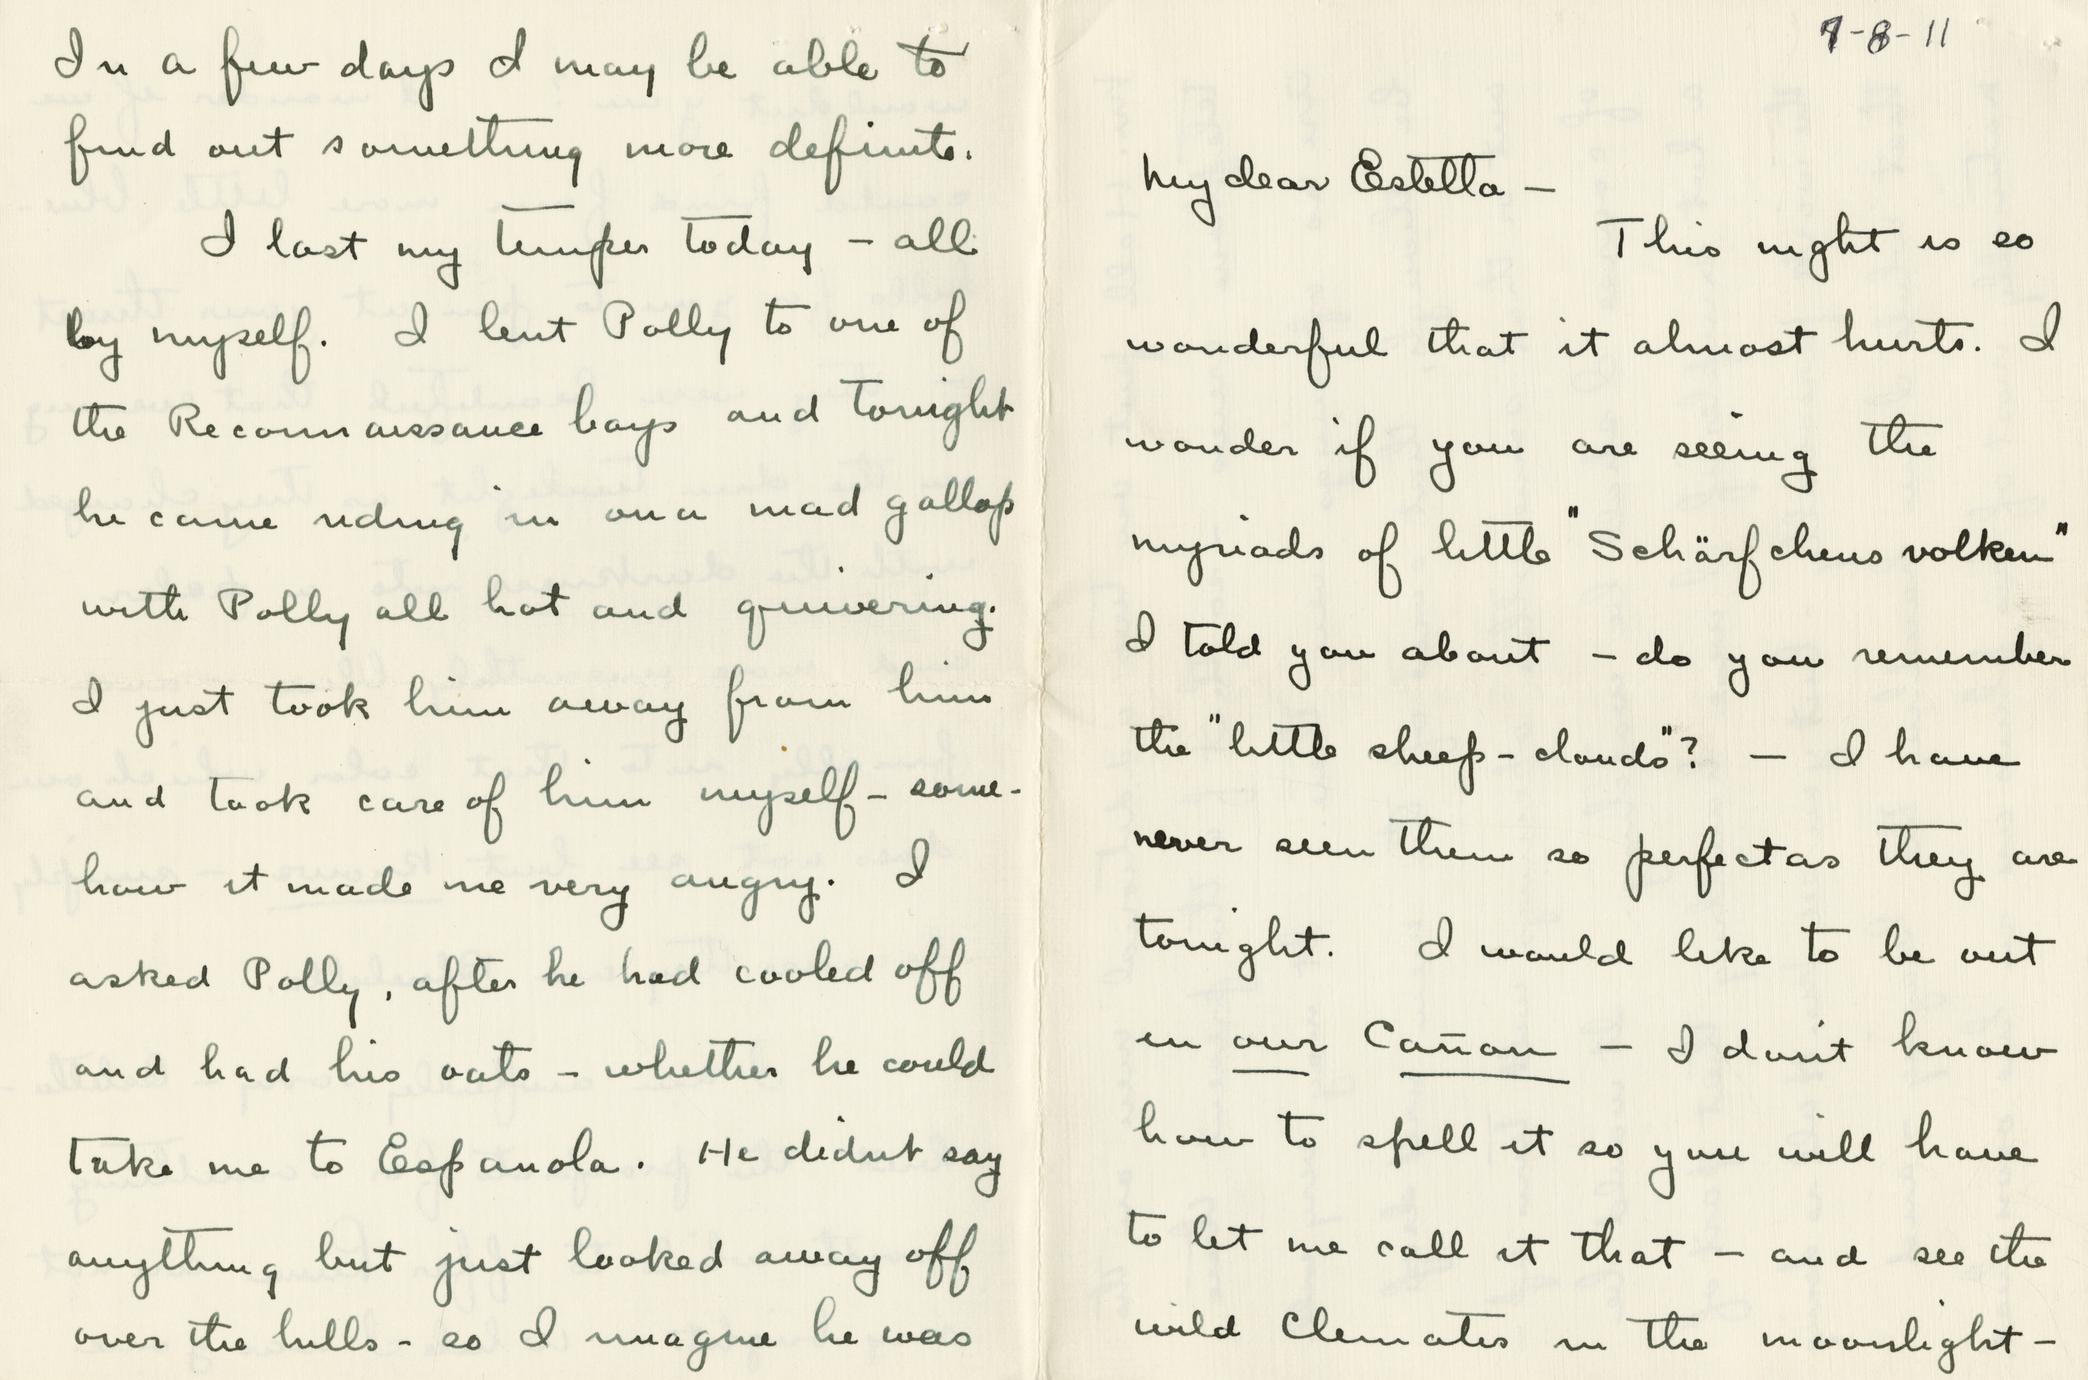 In a few days I may be able to
find out something more definite.
I lost my temper today – all
by myself. I lent Polly to one of
the Reconnaissance boys and tonight
he came riding in on a mad gallop
with Polly all hot and quivering.
I just took him away from him
and took care of him myself – some-
how it made me very angry. I
asked Polly, after he had cooled off
and had his oats – whether he could
take me to Espanola. He didnt say
anything but just looked away off
over the hills – so I imagine he was
7-8-11
My dear Estella –
This night is so
wonderful that it almost hurts. I
wonder if you are seeing the
myriads of little "Schärfchens volken"
I told you about – do you remember
the "little sheep-clouds"? – I have
never seen them so perfect as they are
tonight. I would like to be out
in our Cañon – I don't know
how to spell it so you will have
to let me call it that – and see the
wild Clematis in the moonlight –